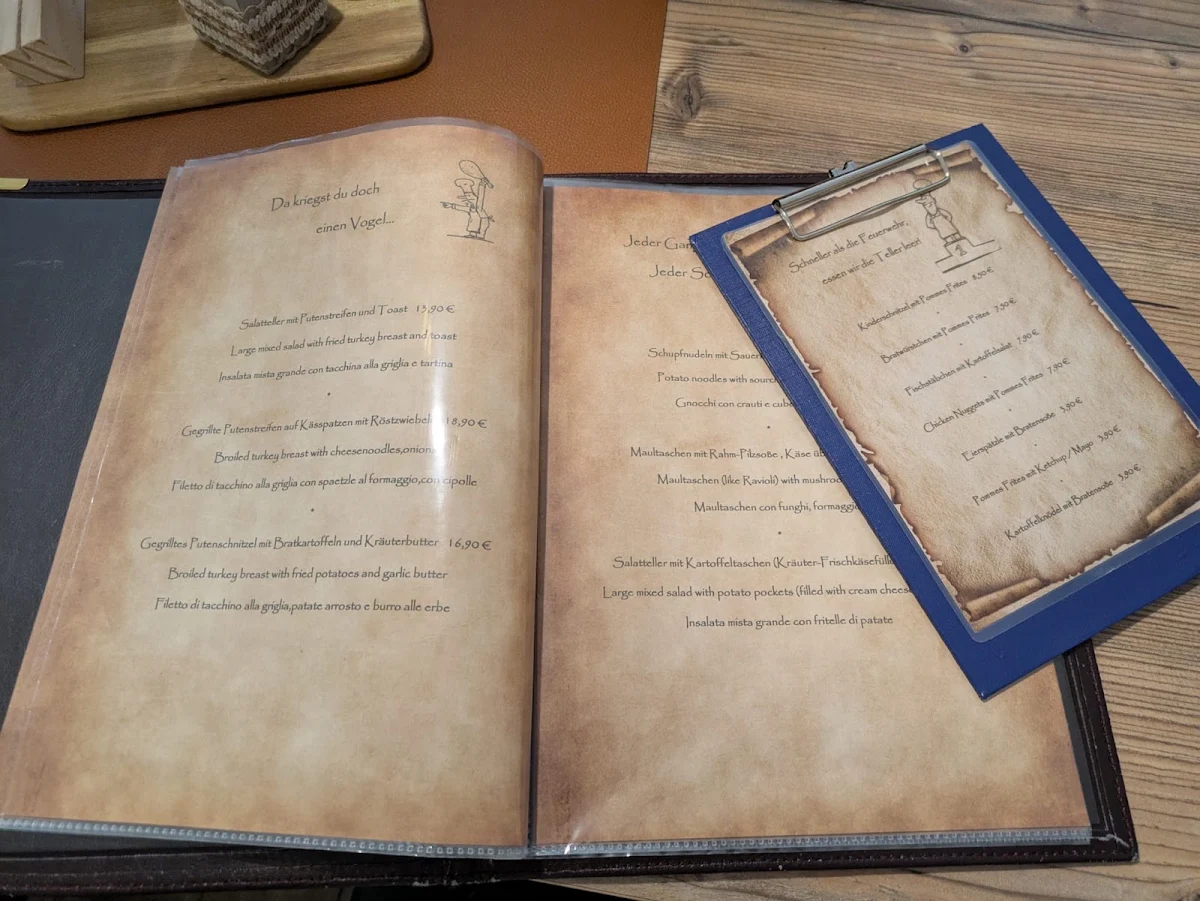 Da kriegst du doch
einen Vogel...
Salatteller mit Putenstreifen und Toast 15,90 €
Large mixed salad with fried turkey breast and toast
Insalata mista grande con tacchina alla griglia e tartina
Gegrillte Putenstreifen auf Kässpatzen mit Röstzwiebeln 18,90 €
Broiled turkey breast with cheesenoodles,onions
Filetto di tacchino alla griglia con spaetzle al formaggio,con cipolle
Gegrilltes Putenschnitzel mit Bratkartoffeln und Kräuterbutter 16,90 €
Broiled turkey breast with fried potatoes and garlic butter
Filetto di tacchino alla griglia,patate arrosto e burro alle erbe
Jeder
Jeder
Schupfnudeln mit
Potato noodles with
Gnocchi con crauti e
Maultaschen mit Rahm-Pilzsoße , Käse
Maultaschen (like Ravioli) with
Maultaschen con funghi, formaggio
Salatteller mit Kartoffeltaschen
Large mixed salad with potato pockets (filled with cream
Insalata mista grande con fritelle di patate
Schneller als die Feuerwehr,
essen wir die Teller leer!
Kinderschnitzel mit Pommes Frites 8,50 €
Bratwürstchen mit Pommes Frites 7,50 €
Fischstäbchen mit Kartoffelsalat 7,90 €
Chicken Nuggets mit Pommes Frites 7,90 €
Eierspätzle mit Bratensoße 3,90 €
Pommes Frites mit Ketchup / Mayo 3,90 €
Kartoffelknödel mit Bratensoße 3,90 €